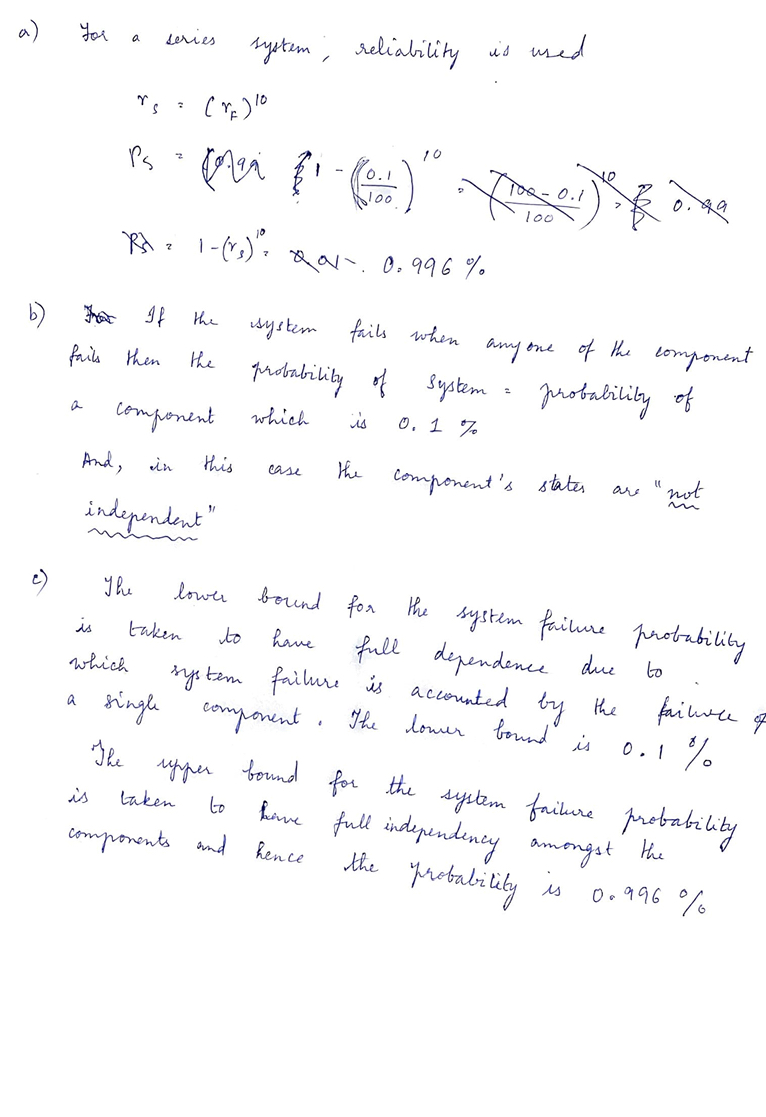 a) For a series system, reliability is used
r_s = (r_F)^10
P_S = 1 - (0.1/100)^10 = ((100 - 0.1)/100)^10 = 0.99
= 1 - (r_s)^10 = 0.996 %
b) If the system fails when anyone of the component
fails then the probability of system = probability of
a component which is 0.1 %
And, in this case the component's states are "not
independent"
c) The lower bound for the system failure probability
is taken to have full dependence due to
which system failure is accounted by the failure of
a single component. The lower bound is 0.1 %
The upper bound for the system failure probability
is taken to have full independency amongst the
components and hence the probability is 0.996 %